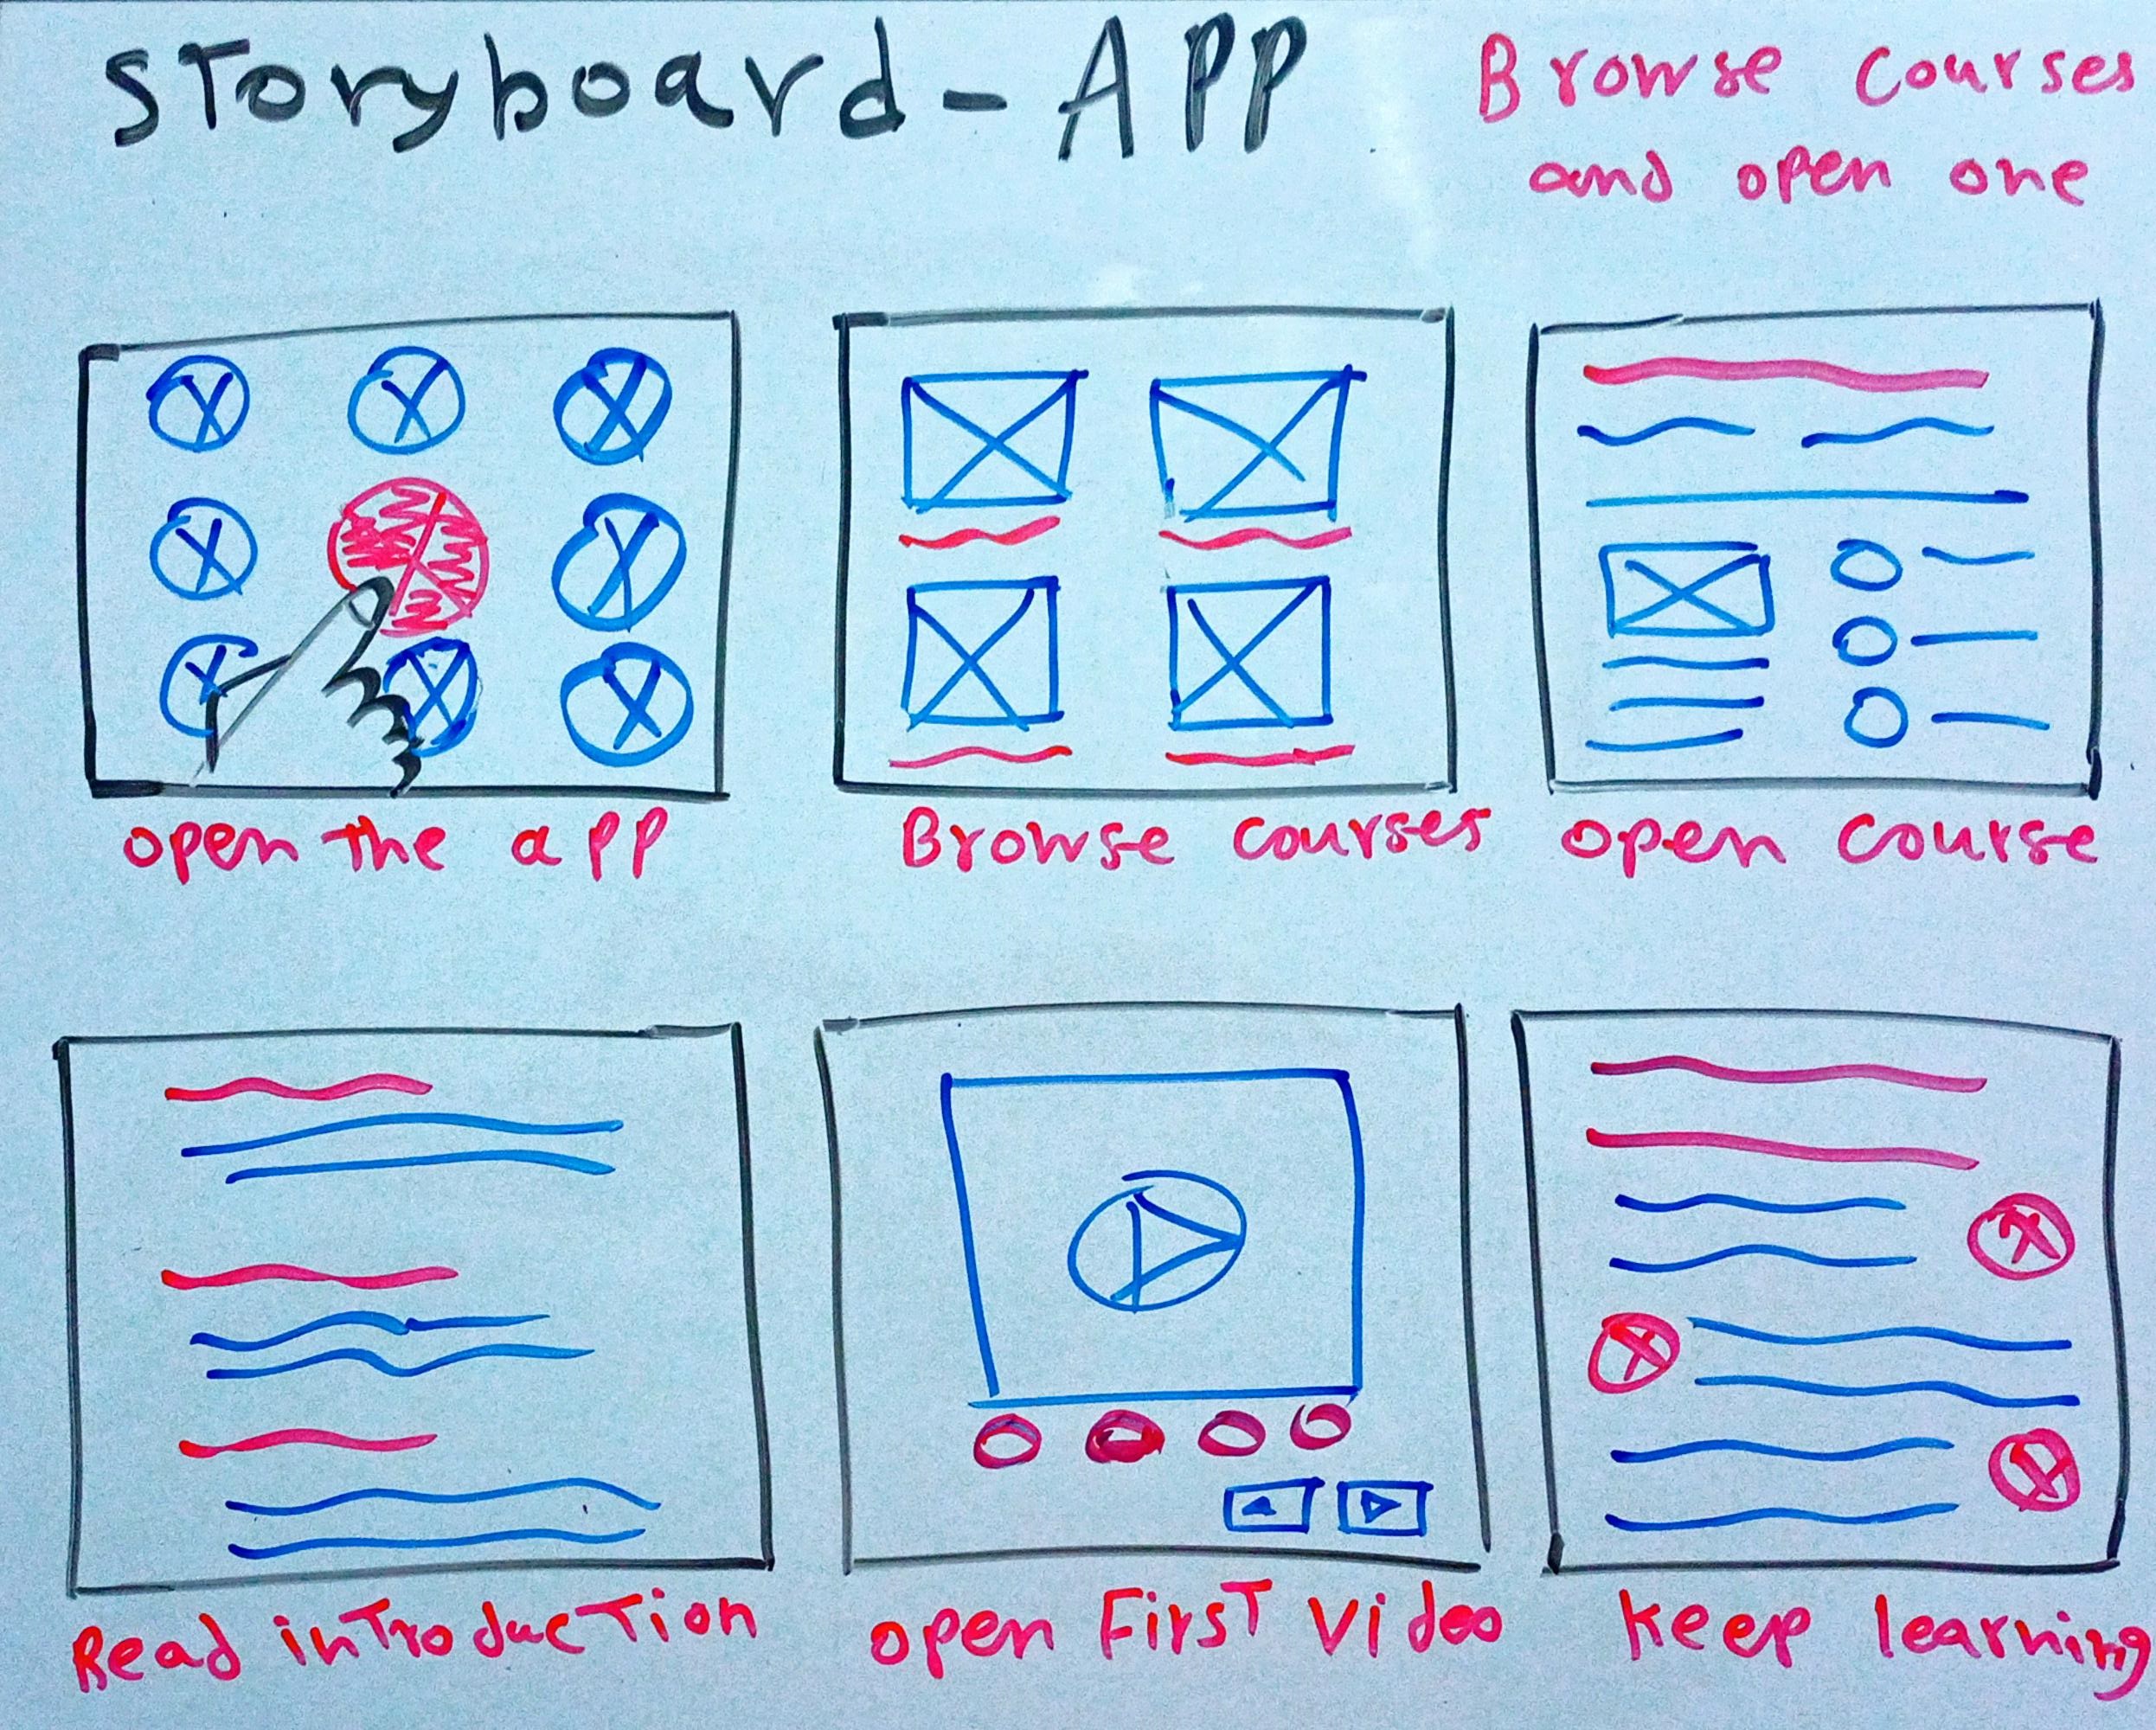 Storyboard - APP
Browse courses
and open one
open the app
Browse courses
open course
Read introduction
open First video
keep learning